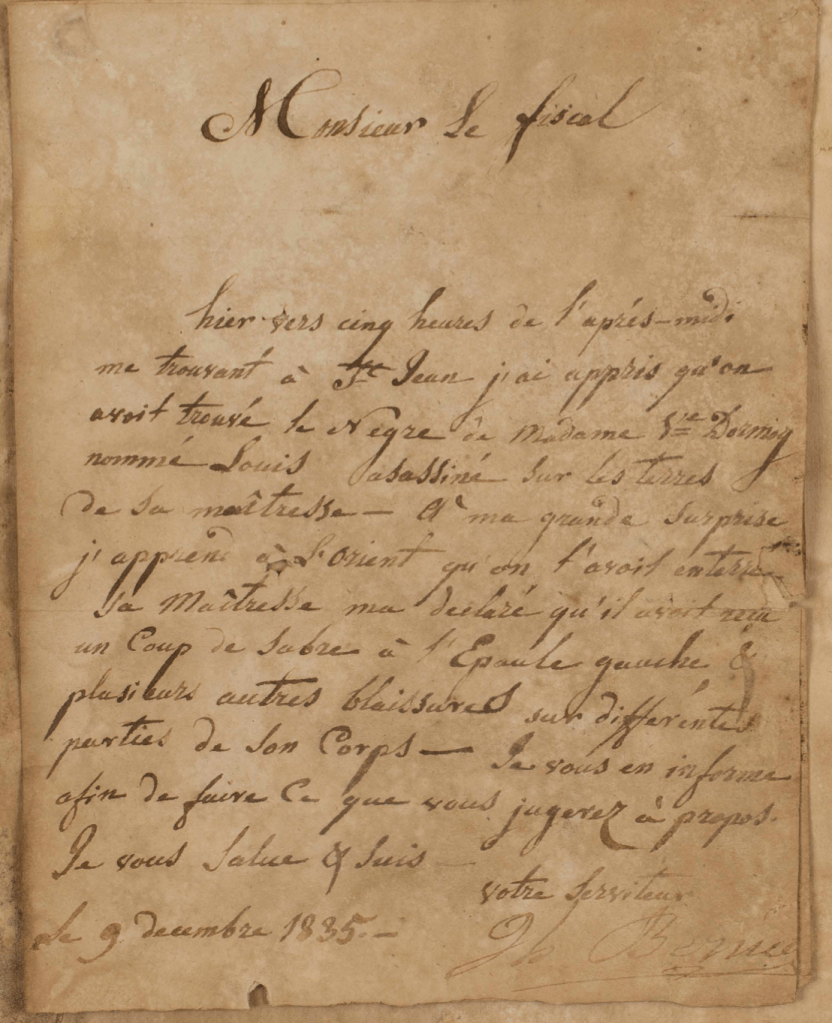 Monsieur Le fiscal
hier vers cinq heures de l'aprés-midi
me trouvant à St Jean j'ai appris qu'on
avoit trouvé le Négre de Madame Vve
nommé Louis asassiné sur les terres
de sa maîtresse — A ma grande surprise
j'apprend à L'Orient qu'on l'avoit enterré
sa Maîtresse ma declaré qu'il avoit recu
un Coup de Sabre à l'Epaule gauche &
plusieurs autres blaissures sur différentes
parties de son Corps — Je vous en informe
afin de faire Ce que vous jugerez à propos.
Je vous Salue & suis —
votre serviteur
Le 9 decembre 1835. —